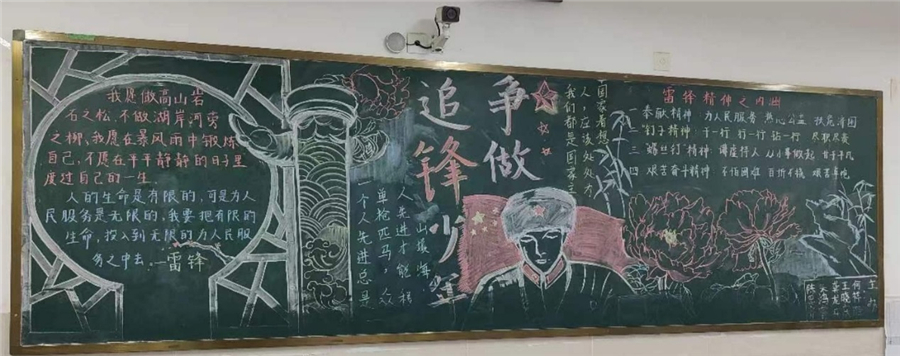 我愿做高山岩
石之松，不做湖岸河旁
之柳，我愿在暴风雨中锻炼
自己，不愿在平平静静的日子里
度过自己的一生。
人的生命是有限的，可是为人
民服务是无限的，我要把有限的
生命，投入到无限的为人民服
务之中去。—雷锋
争做
追锋少年
一个人先进总是
单枪匹马，众
人先进才能移
山填海
国家着想
人，应该处处为
我们都是国家主
雷锋精神之内涵
一 奉献精神 为人民服务 热心公益 扶危济困
二 "钉子"精神：干一行 钉一行 钻一行 尽职尽责
三 "螺丝钉"精神：谦虚待人 从小事做起 甘于平凡
四 艰苦奋斗精神 不怕困难 百折不挠